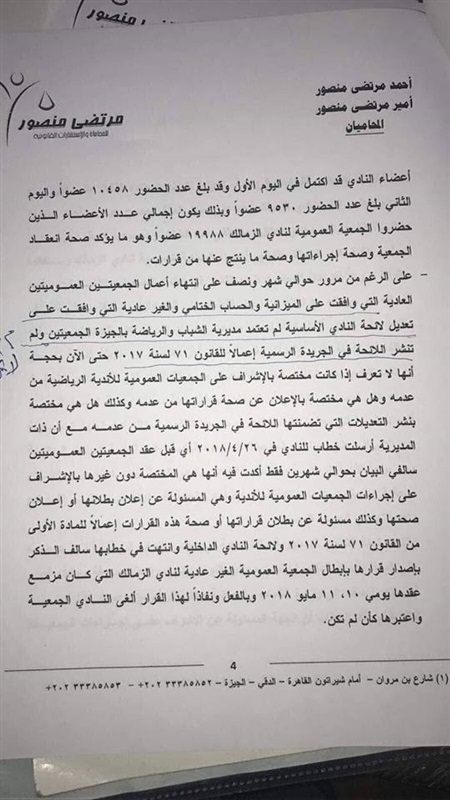 أحمد مرتضى منصور
أمير مرتضى منصور
المحاميان
مرتضى منصور
للمحاماة والإستشارات القانونية
أعضاء النادي قد اكتمل في اليوم الأول وقد بلغ عدد الحضور ١٠٤٥٨ عضواً واليوم
الثاني بلغ عدد الحضور ٩٥٣٠ عضواً وبذلك يكون إجمالي عدد الأعضاء الذين
حضروا الجمعية العمومية لنادي الزمالك ١٩٩٨٨ عضواً وهو ما يؤكد صحة انعقاد
الجمعية وصحة إجراءاتها وصحة ما ينتج عنها من قرارات.
– على الرغم من مرور حوالي شهر ونصف على انتهاء أعمال الجمعيتين العموميتين
العادية التي وافقت على الميزانية والحساب الختامي والغير عادية التي وافقت على
تعديل لائحة النادي الأساسية لم تعتمد مديرية الشباب والرياضة بالجيزة الجمعيتين ولم
تنشر اللائحة في الجريدة الرسمية إعمالاً للقانون ٧١ لسنة ٢٠١٧ حتى الآن بحجة
أنها لا تعرف إذا كانت مختصة بالإشراف على الجمعيات العمومية للأندية الرياضية من
عدمه وهل هي مختصة بالإعلان عن صحة قراراتها من عدمه وكذلك هل هي مختصة
بنشر التعديلات التي تضمنتها اللائحة في الجريدة الرسمية من عدمه مع أن ذات
المديرية أرسلت خطاب للنادي في ٢٠١٨/٤/٢٦ أي قبل عقد الجمعيتين العموميتين
سالفي البيان بحوالي شهرين فقط أكدت فيه أنها هي المختصة دون غيرها بالإشراف
على إجراءات الجمعيات العمومية للأندية وهي المسئولة عن إعلان بطلانها أو إعلان
صحتها وكذلك مسئولة عن بطلان قراراتها أو صحة هذه القرارات إعمالاً للمادة الأولى
من القانون ٧١ لسنة ٢٠١٧ ولائحة النادي الداخلية وانتهت في خطابها سالف الذكر
بإصدار قرارها بإبطال الجمعية العمومية الغير عادية لنادي الزمالك التي كان مزمع
عقدها يومي ١٠، ١١ مايو ٢٠١٨ وبالفعل ونفاذاً لهذا القرار ألغى النادي الجمعية
واعتبرها كأن لم تكن.
4
(١) شارع بن مروان – أمام شيراتون القاهرة – الدقي – الجيزة – ٣٣٣٨٥٨٥٢ ٢٠٢+ – ٣٣٣٨٥٨٥٣ ٢٠٢+